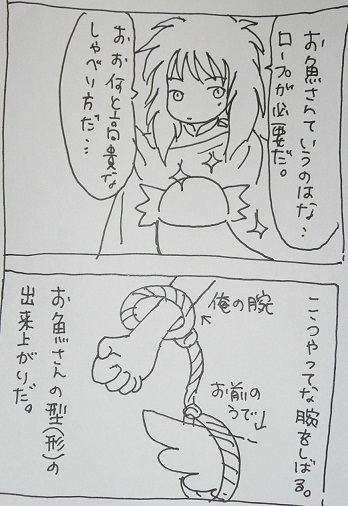 お魚さんていうのはな…
ロープが必要だ。
おお何と高貴な
しゃべい方だ…
こうやってな腕をしばる。
俺の腕
お前の
うで
お魚さんの型(形)の
出来上がりだ。